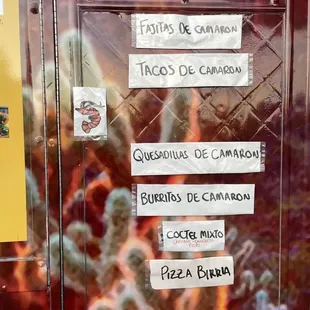 FAJITAS DE CAMARON
TACOS DE CAMARON
QUESADILLAS DE CAMARON
BURRITOS DE CAMARON
COCTEL MIXTO
PIZZA BIRRIA